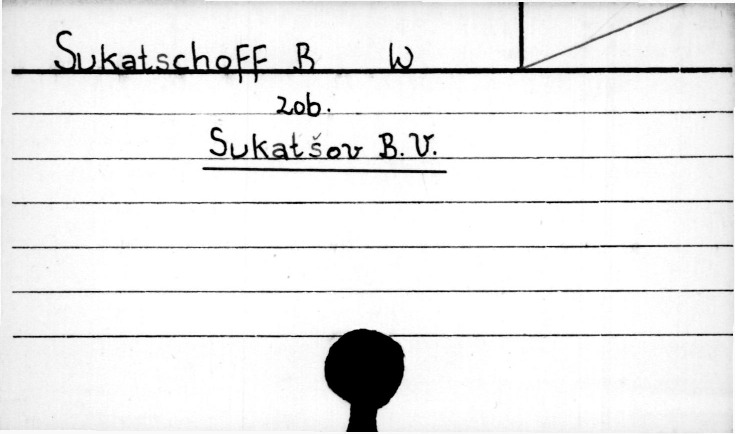 Sukatschoff B W
zob.
Sukatšov B.V.